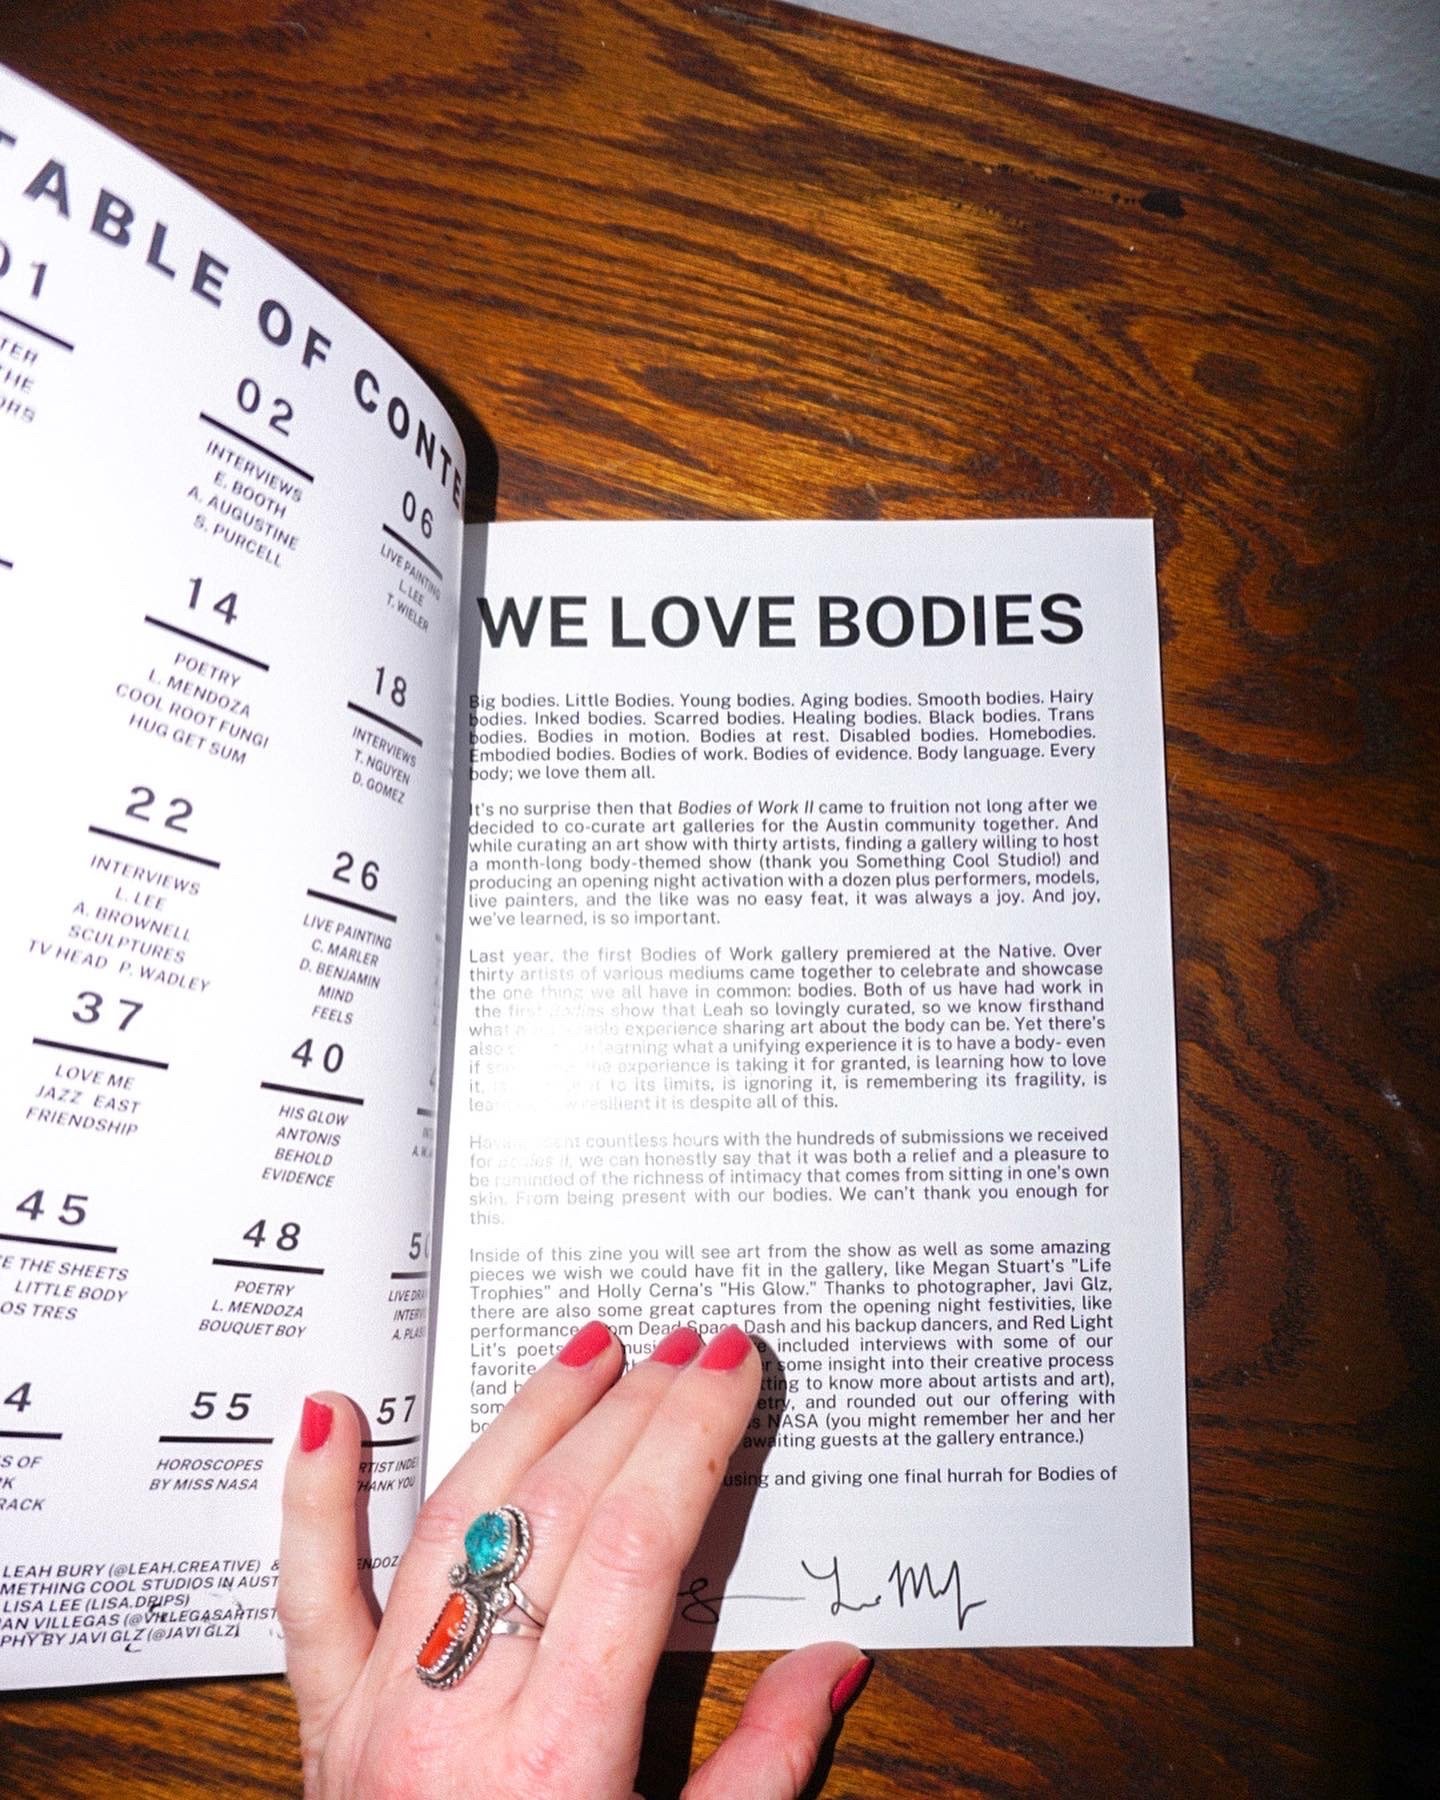 TABLE OF CONTE
01
TER
THE
ORS
02
INTERVIEWS
E. BOOTH
A. AUGUSTINE
S. PURCELL
06
LIVE PAINTING
L. LEE
T. WIELER
14
POETRY
L. MENDOZA
COOL ROOT FUNGI
HUG GET SUM
18
INTERVIEWS
T. NGUYEN
D. GOMEZ
22
INTERVIEWS
L. LEE
A. BROWNELL
SCULPTURES
TV HEAD P. WADLEY
26
LIVE PAINTING
C. MARLER
D. BENJAMIN
MIND
FEELS
37
LOVE ME
JAZZ EAST
FRIENDSHIP
40
HIS GLOW
ANTONIS
BEHOLD
EVIDENCE
45
E THE SHEETS
LITTLE BODY
OS TRES
48
POETRY
L. MENDOZA
BOUQUET BOY
5
LIVE DRA
INTERVI
A. PLAS
4
S OF
K
RACK
55
HOROSCOPES
BY MISS NASA
57
RTIST INDE
HANK YOU
LEAH BURY (@LEAH.CREATIVE) & ENDOZ
METHING COOL STUDIOS IN AUST
LISA LEE (LISA.DRIPS)
AN VILLEGAS (@VILLEGASARTIST
PHY BY JAVI GLZ (@JAVI GLZ)
WE LOVE BODIES
Big bodies. Little Bodies. Young bodies. Aging bodies. Smooth bodies. Hairy
bodies. Inked bodies. Scarred bodies. Healing bodies. Black bodies. Trans
bodies. Bodies in motion. Bodies at rest. Disabled bodies. Homebodies.
Embodied bodies. Bodies of work. Bodies of evidence. Body language. Every
body; we love them all.
It's no surprise then that Bodies of Work II came to fruition not long after we
decided to co-curate art galleries for the Austin community together. And
while curating an art show with thirty artists, finding a gallery willing to host
a month-long body-themed show (thank you Something Cool Studio!) and
producing an opening night activation with a dozen plus performers, models,
live painters, and the like was no easy feat, it was always a joy. And joy,
we've learned, is so important.
Last year, the first Bodies of Work gallery premiered at the Native. Over
thirty artists of various mediums came together to celebrate and showcase
the one thing we all have in common: bodies. Both of us have had work in
the first Bodies show that Leah so lovingly curated, so we know firsthand
what experience sharing art about the body can be. Yet there's
also learning what a unifying experience it is to have a body- even
if the experience is taking it for granted, is learning how to love
it, to its limits, is ignoring it, is remembering its fragility, is
resilient it is despite all of this.
countless hours with the hundreds of submissions we received
for Bodies II, we can honestly say that it was both a relief and a pleasure to
be reminded of the richness of intimacy that comes from sitting in one's own
skin. From being present with our bodies. We can't thank you enough for
this.
Inside of this zine you will see art from the show as well as some amazing
pieces we wish we could have fit in the gallery, like Megan Stuart's "Life
Trophies" and Holly Cerna's "His Glow." Thanks to photographer, Javi Glz,
there are also some great captures from the opening night festivities, like
performance om Dead Space Dash and his backup dancers, and Red Light
Lit's poets musi included interviews with some of our
favorite some insight into their creative process
(and b tting to know more about artists and art),
som etry, and rounded out our offering with
bo s NASA (you might remember her and her
awaiting guests at the gallery entrance.)
using and giving one final hurrah for Bodies of